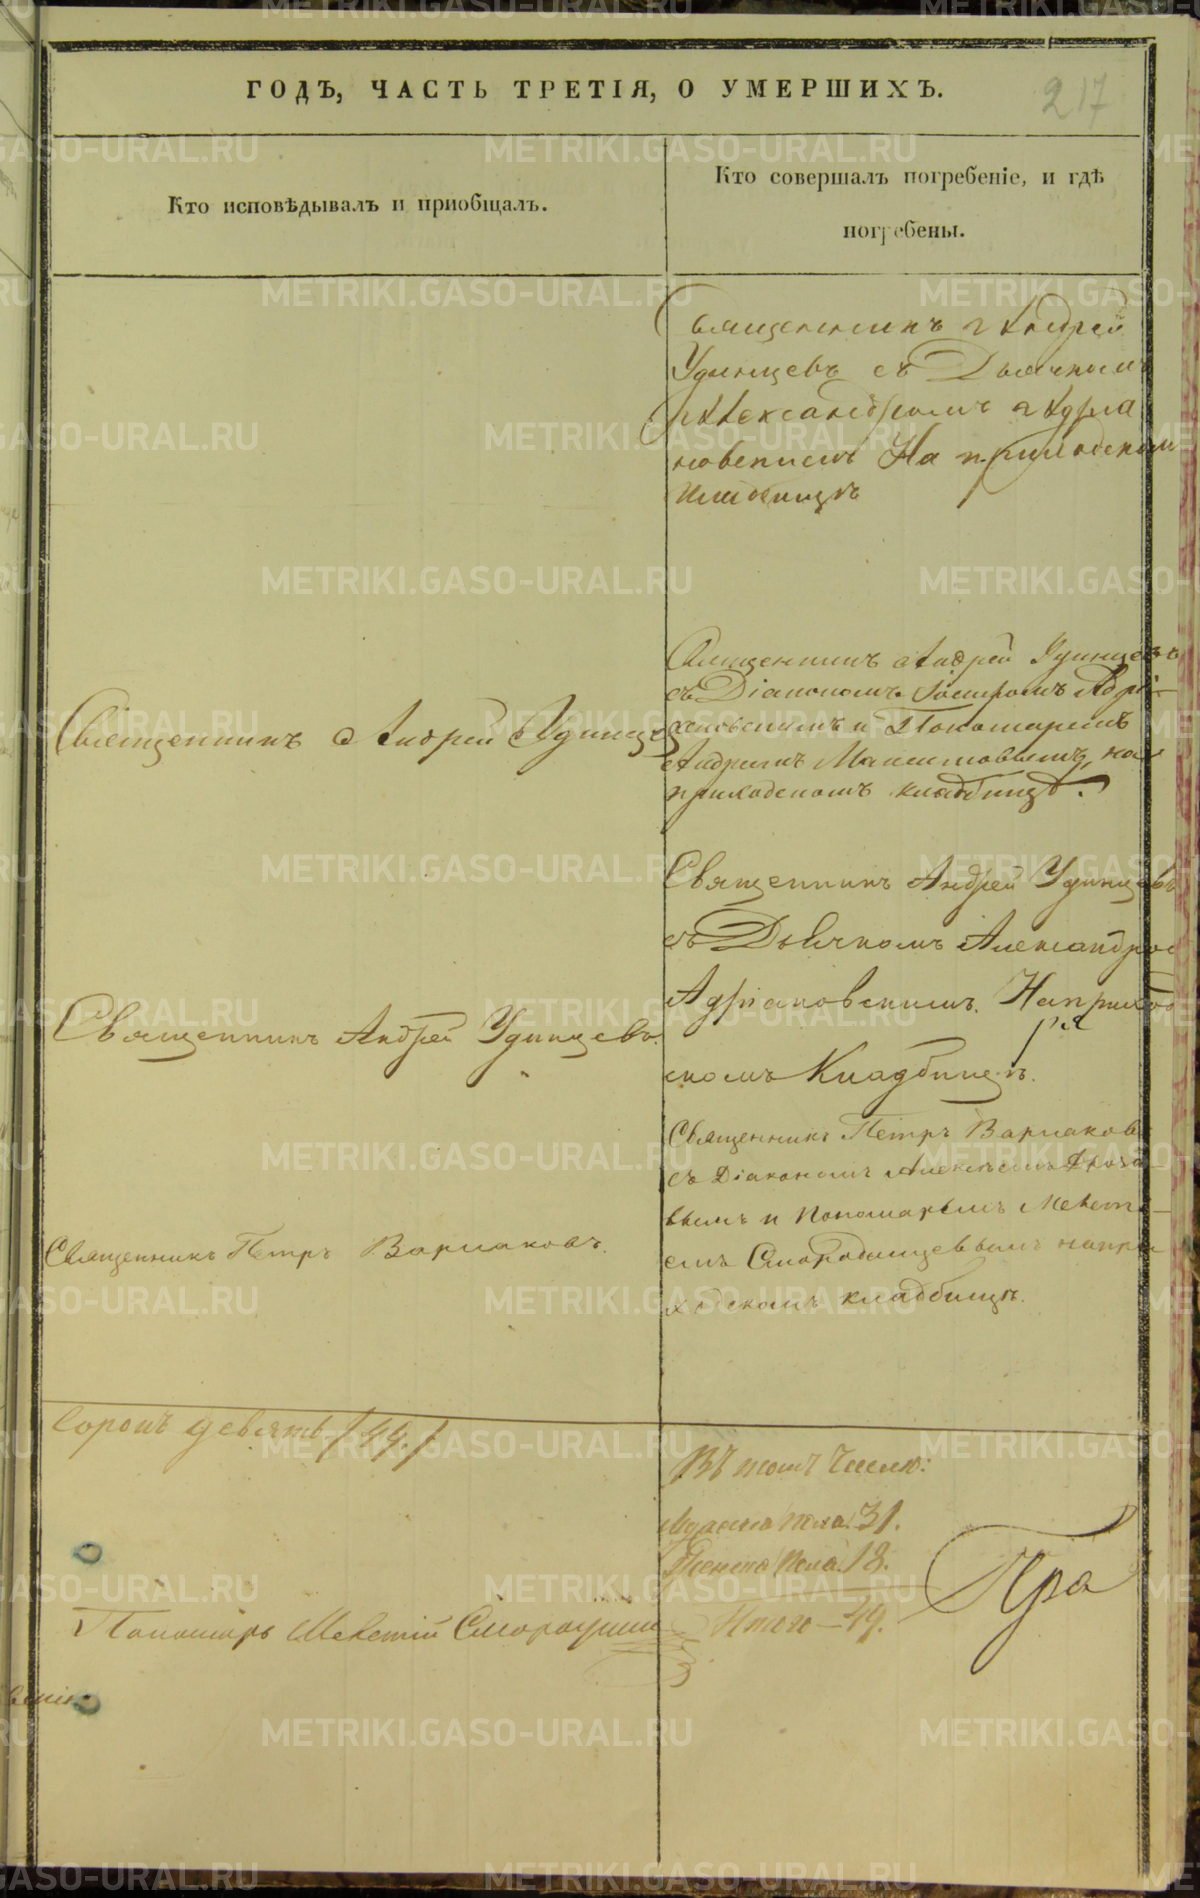 ГОДЪ, ЧАСТЬ ТРЕТІЯ, О УМЕРШИХЪ.
217
Кто исповѣдывалъ и приобщалъ.
Кто совершалъ погребеніе, и гдѣ
погребены.
Священникъ Андрей
Удинцевъ съ Дьячкомъ
Александромъ Адріа
новскимъ На приходскомъ
кладбищѣ
Священникъ Андрей Удинцевъ
Священникъ Андрей Удинцевъ
съ Діакономъ Іосифомъ Адрі-
ановскимъ и Пономаремъ
Андреемъ Макситовымъ, на
приходскомъ кладбищѣ.
Священникъ Андрей Удинцевъ.
Священникъ Андрей Удинцевъ
съ Дьячкомъ Александром
Адріановскимъ. На приход
скомъ Кладбищѣ.
Священникъ Петръ Варлаковъ.
Священникъ Петръ Варлаковъ
съ Діакономъ Алексѣемъ
вымъ и Пономаремъ Мелеті-
емъ Смородинцевымъ на при
ходскомъ кладбищѣ.
Сорокъ девять /49./
Въ томъ числѣ:
Мужска пола 31.
Женска пола 18.
Итого — 49.
Пра
Пономарь Мелетій Смородин
METRIKI.GASO-URAL.RU